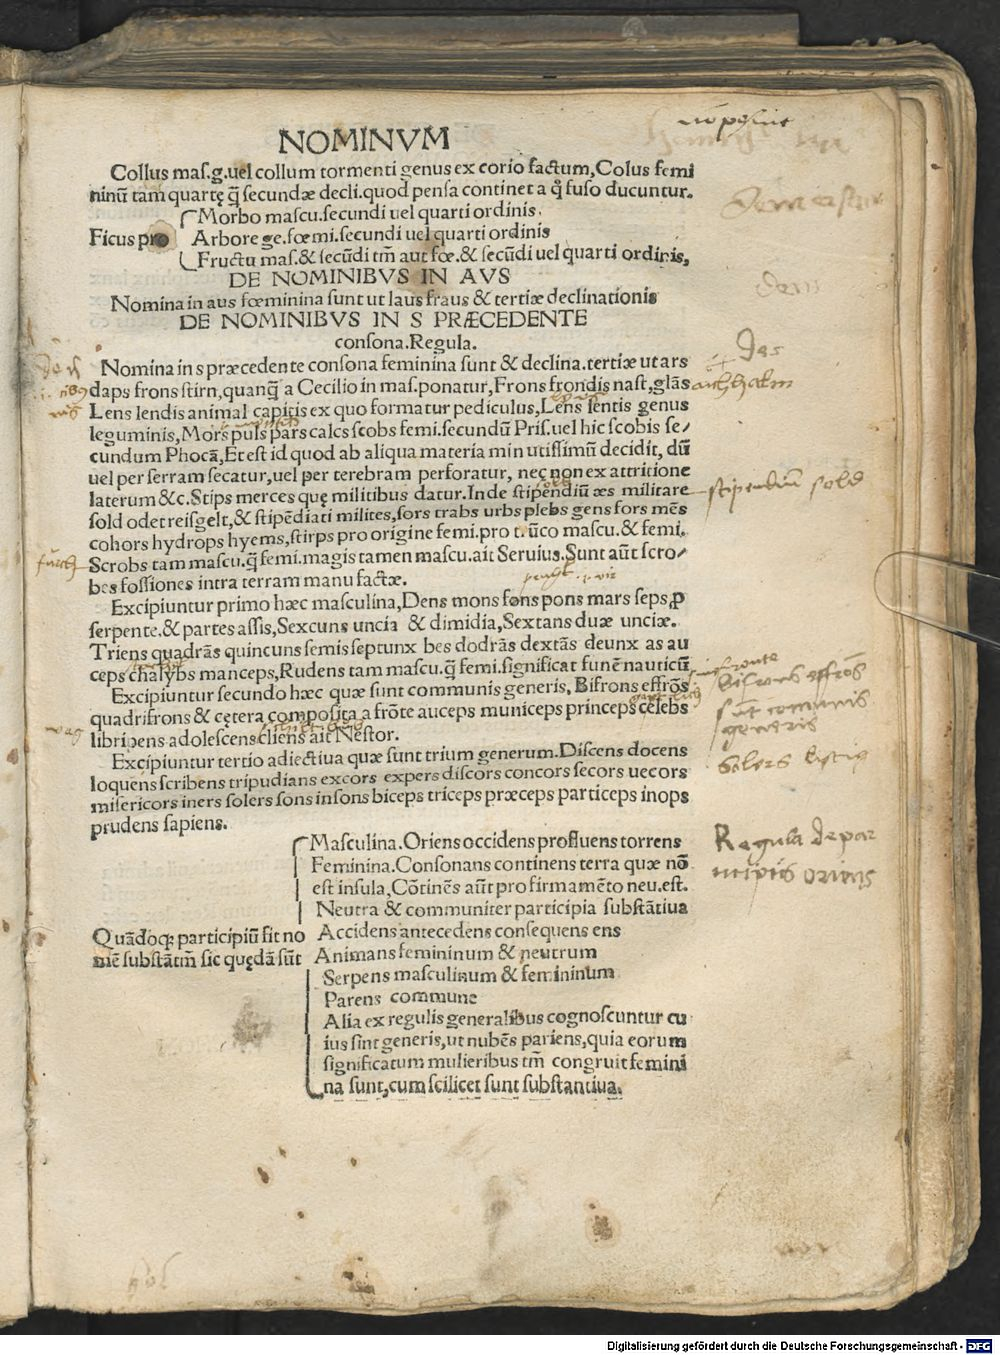 NOMINVM
Collus mas.g.uel collum tormenti genus ex corio factum,Colus femi
ninũ tam quartę q̃ secundæ decli.quod pensa continet a q̃ fuso ducuntur.
Morbo mascu.secundi uel quarti ordinis.
Ficus pro Arbore ge.fœmi.secundi uel quarti ordinis
Fructu mas.& secũdi tm̃ aut fœ.& secũdi uel quarti ordinis,
DE NOMINIBVS IN AVS
Nomina in aus fœminina sunt ut laus fraus & tertiæ declinationis
DE NOMINIBVS IN S PRÆCEDENTE
consona.Regula.
Nomina in s præcedente consona feminina sunt & declina.tertiæ ut ars
daps frons stirn,quanq̃ a Cecilio in mas.ponatur,Frons frondis nast,glãs
Lens lendis animal capitis ex quo formatur pediculus,Lens lentis genus
leguminis,Mors puls pars calcs scobs femi.secundũ Pris.uel hic scobis se/
cundum Phocã,Et est id quod ab aliqua materia minutissimũ decidit, dũ
uel per serram secatur,uel per terebram perforatur, nec non ex attritione
laterum &c.Stips merces quę militibus datur.Inde stipendiũ æs militare
sold odet reisgelt,& stipẽdiati milites,sors trabs urbs plebs gens fors mẽs
cohors hydrops hyems,stirps pro origine femi.pro trũco mascu.& femi.
Scrobs tam mascu.q̃ femi.magis tamen mascu.ait Seruius.Sunt aũt scro/
bes fossiones intra terram manu factæ.
Excipiuntur primo hæc masculina,Dens mons fons pons mars seps,ꝓ
serpente.& partes assis,Sexcuns uncia & dimidia,Sextans duæ unciæ.
Triens quadrãs quincuns semis septunx bes dodrãs dextãs deunx as au
ceps chalybs manceps,Rudens tam mascu.q̃ femi.significat funẽ nauticũ
Excipiuntur secundo hæc quæ sunt communis generis, Bifrons effrõs
quadrifrons & cętera composita a frõte auceps municeps princeps celebs
libripens adolescens cliens ait Nestor.
Excipiuntur tertio adiectiua quæ sunt trium generum.Discens docens
loquens scribens tripudians excors expers discors concors secors uecors
misericors iners solers sons insons biceps triceps præceps particeps inops
prudens sapiens.
Masculina.Oriens occidens profluens torrens
Feminina.Consonans continens terra quæ nõ
est insula,Cõtinẽs aũt pro firmamẽto neu.est.
Neutra & communiter participia substãtiua
Quãdoq; participiũ fit no Accidens antecedens consequens ens
mẽ substãtm̃ sic quędã sũt Animans femininum & neutrum
Serpens masculinum & femininum
Parens commune
Alia ex regulis generalibus cognoscuntur cu
ius sint generis,ut nubẽs pariens,quia eorum
significatum mulieribus tm̃ congruit femini
na sunt,cum scilicet sunt substantiua.
stipendiũ sold
effrõs
sũt comunis
generis
solers listig
Regula de par
ticipiis oriens
Digitalisierung gefördert durch die Deutsche Forschungsgemeinschaft - DFG